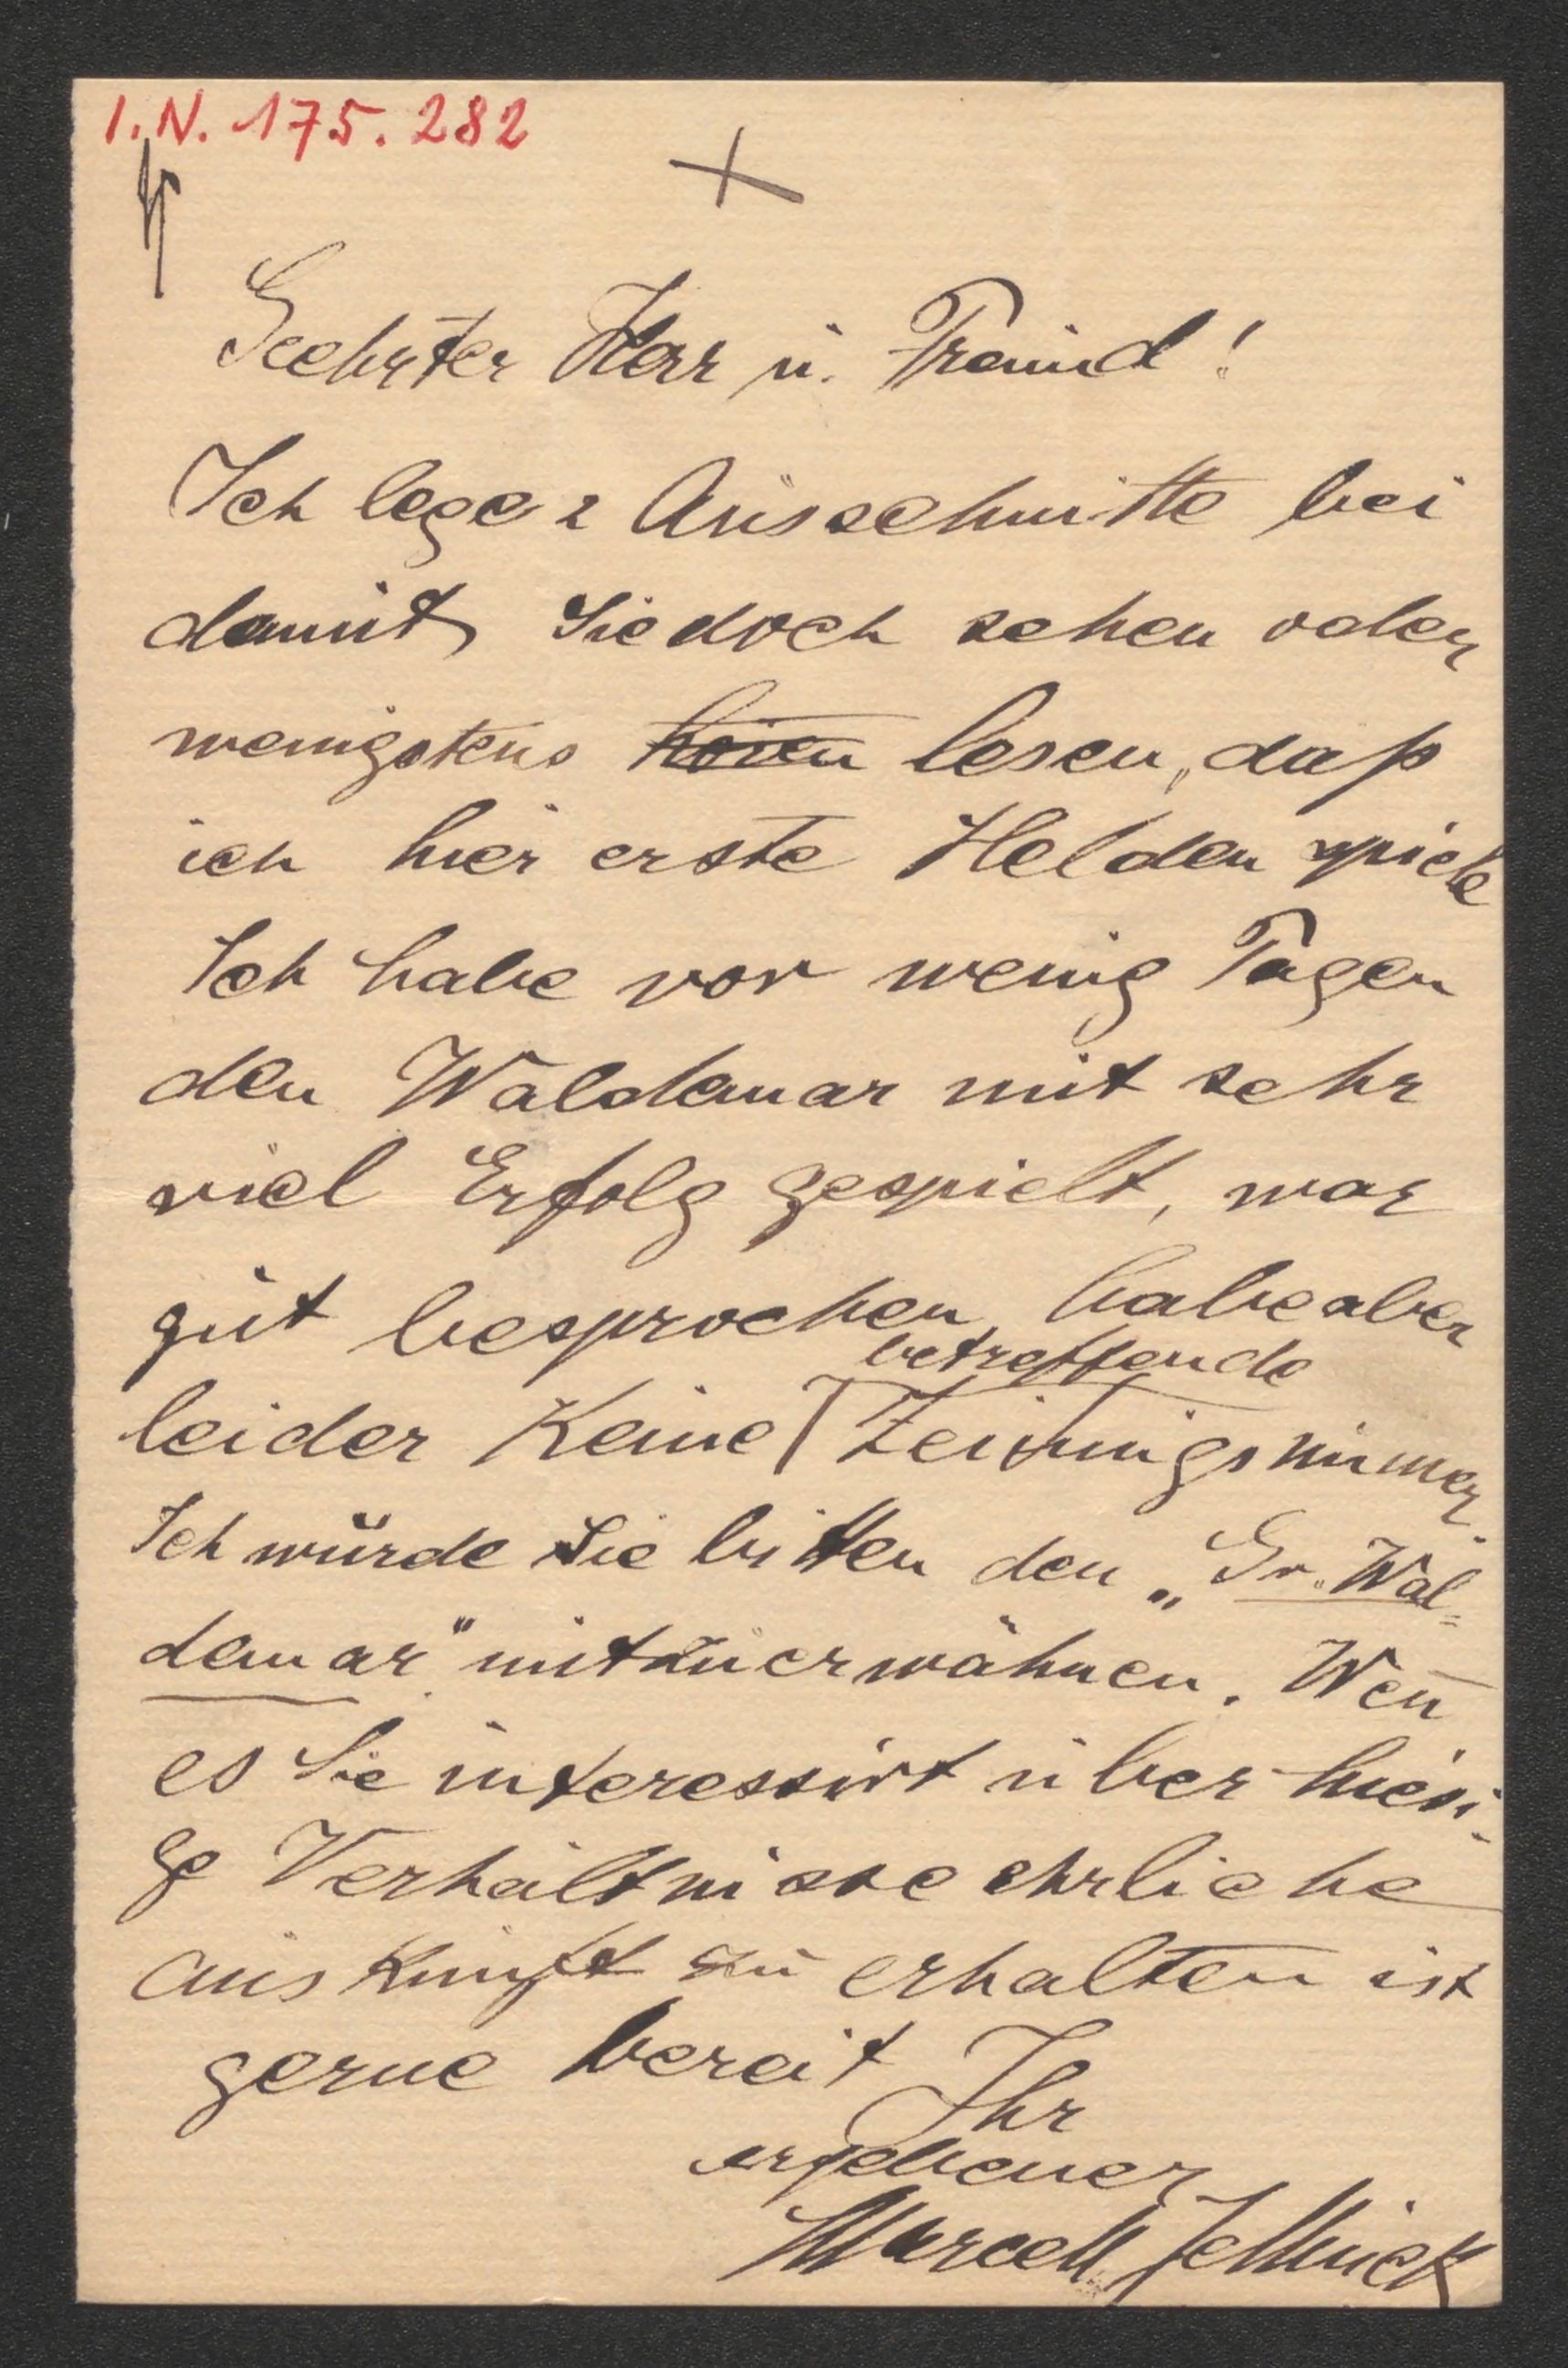 I.N. 175.282
Geehrter Herr u. Freund!
Ich lege 2 Ausschnitte bei
damit Sie doch sehen oder
wenigstens hören lesen, daß
ich hier erste Helden spiele
Ich habe vor wenig Tagen
den Waldemar mit sehr
viel Erfolg gespielt, war
gut besprochen, habe aber
betreffende
leider keine Zeitungsnummer.
Ich würde Sie bitten den „Gr. Wal=
demar" mitzuerwähnen. Wen̄
es Sie interessirt über hiesi-
ge Verhältnisse ehrliche
Auskunft zu erhalten ist
gerne bereit Ihr
ergebener
Marcell Jellinek